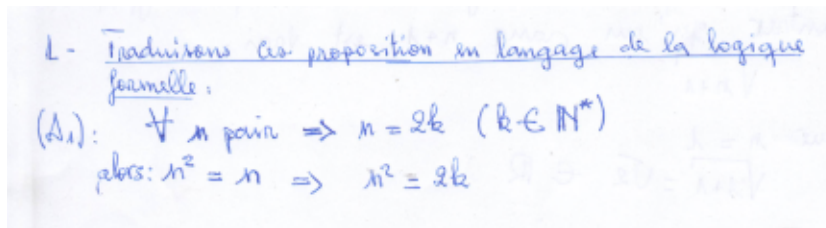 1- Traduisons ces proposition en langage de la logique
formelle.
(A₁): ∀ n pair ⇒ n = 2k (k ∈ ℕ*)
alors: n² = n ⇒ n² = 2k